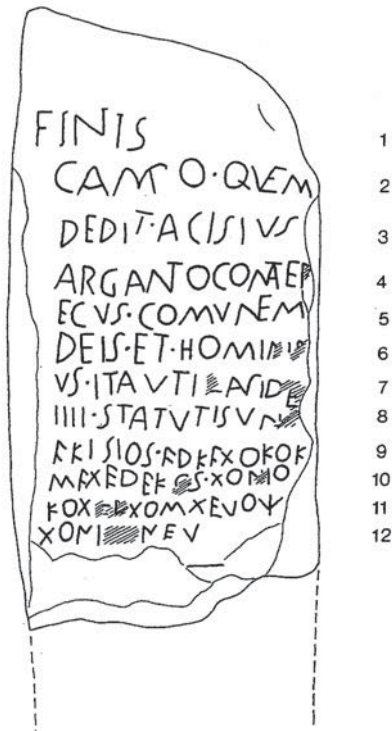 FINIS 1
CAMPO·QVEM 2
DEDIT·ACISIVS 3
ARGANTOCOMATER 4
ECVS·COMVNEM 5
DEIS·ET·HOMINIB 6
VS·ITAVTI LAPIDE 7
IIII·STATVTISVN 8
FKISIOS·FDKFXOKOK 9
MFXEDEK S·XOMO 10
KOX XOMXEVOΨ 11
XOMI NEV 12